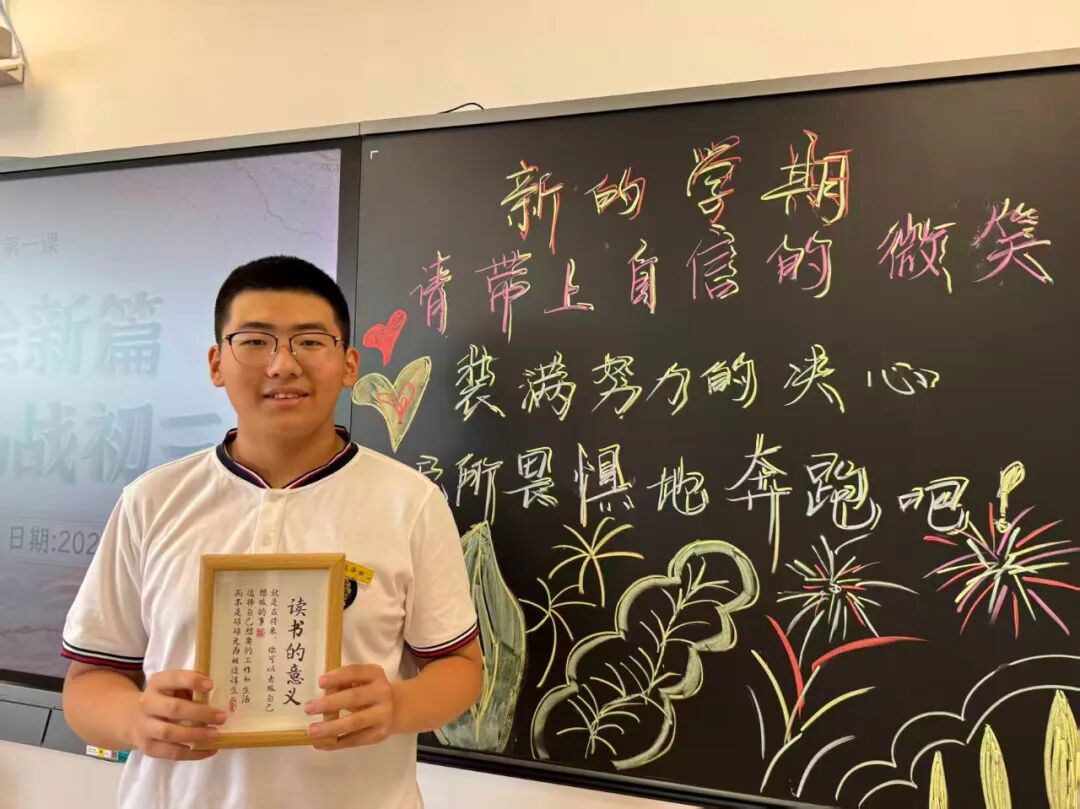 第一课
绘新篇
战初三
日期:202
新的学期
请带上自信的微笑
装满努力的决心
无所畏惧地奔跑吧！
读书的意义
就是在将来，你可以去做自己
想做的事
选择自己想要的工作和生活
而不是碌碌无为被迫谋生